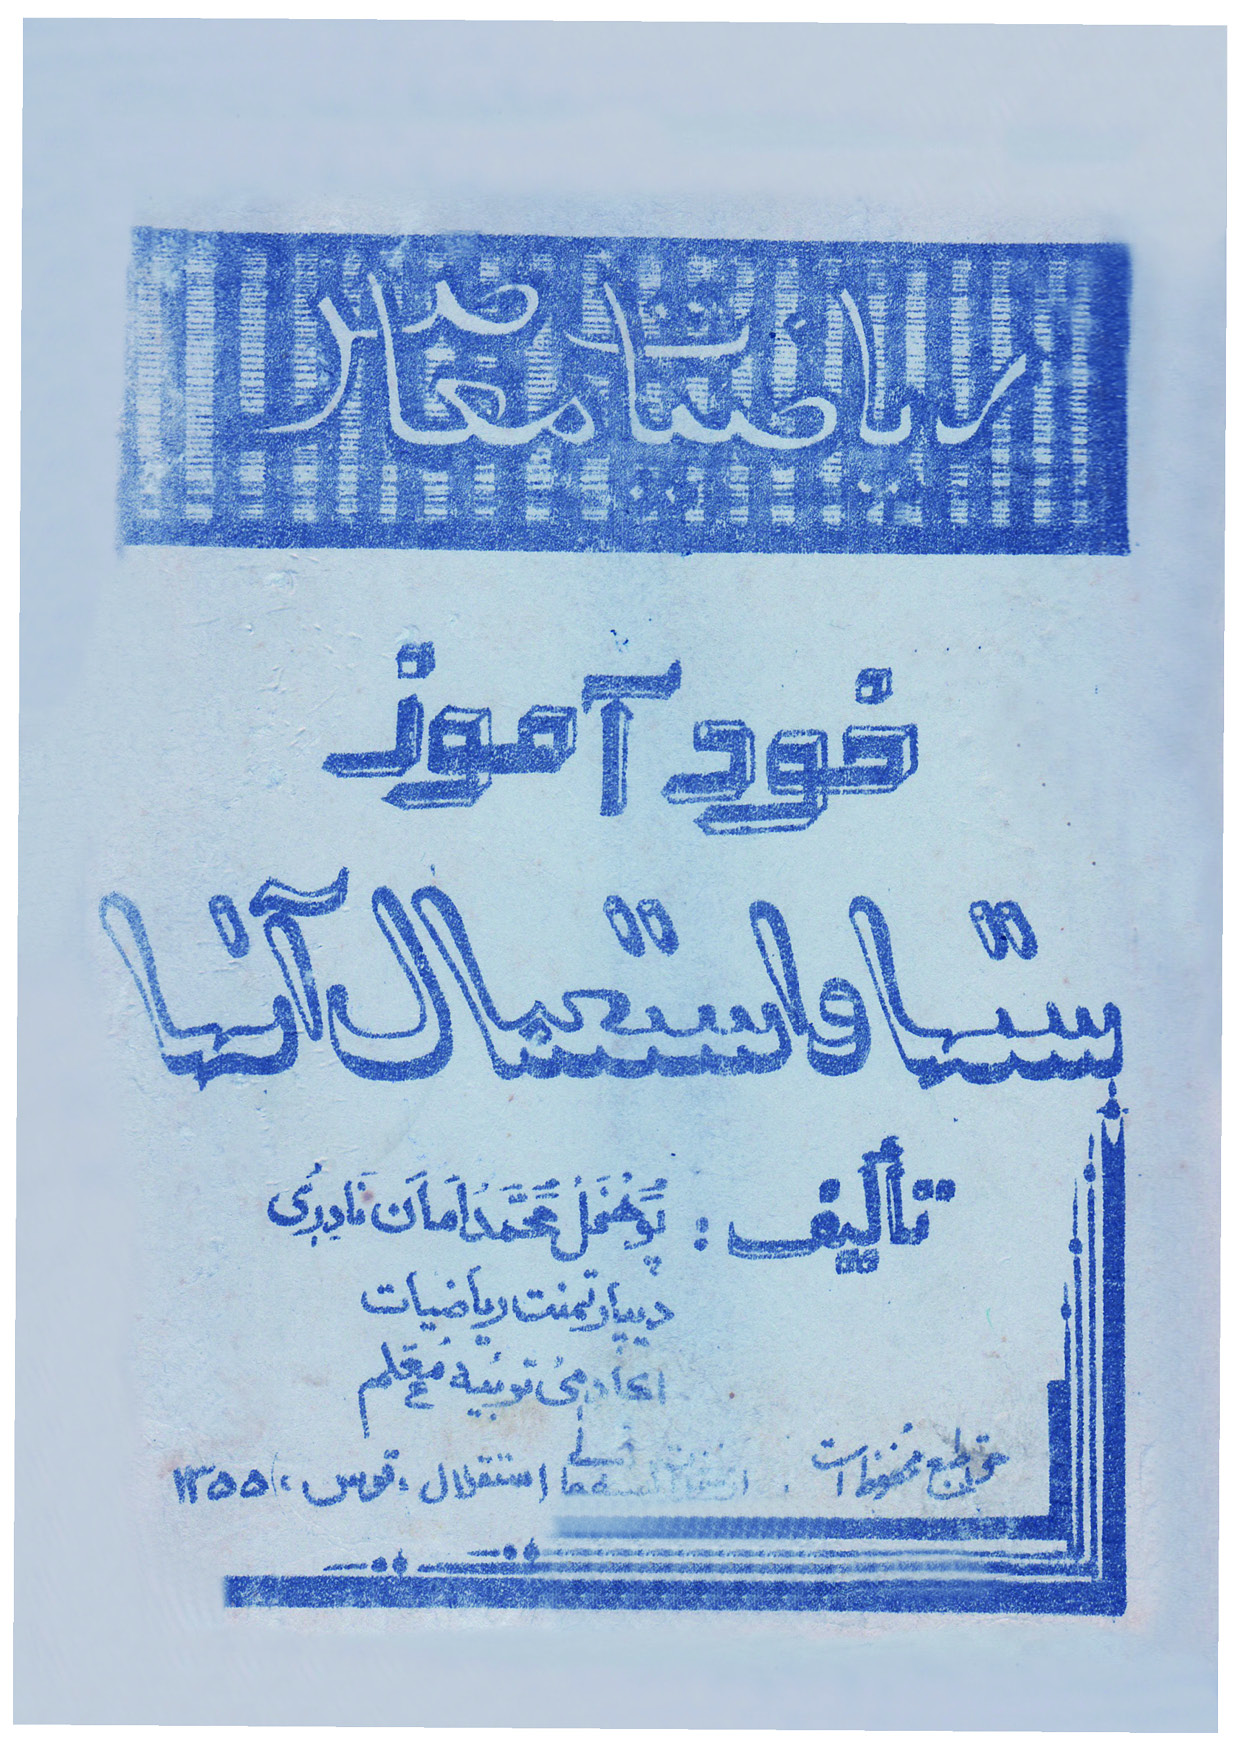 ریاضیات معاصر
خود آموز
ستها و استعمال آنها
تألیف : پوهنمل محمد امان نادری
دیپارتمنت ریاضیات
اکادمی تربیه معلم
حق طبع محفوظ است استقلال ، قوس ، ۱۳۵۵